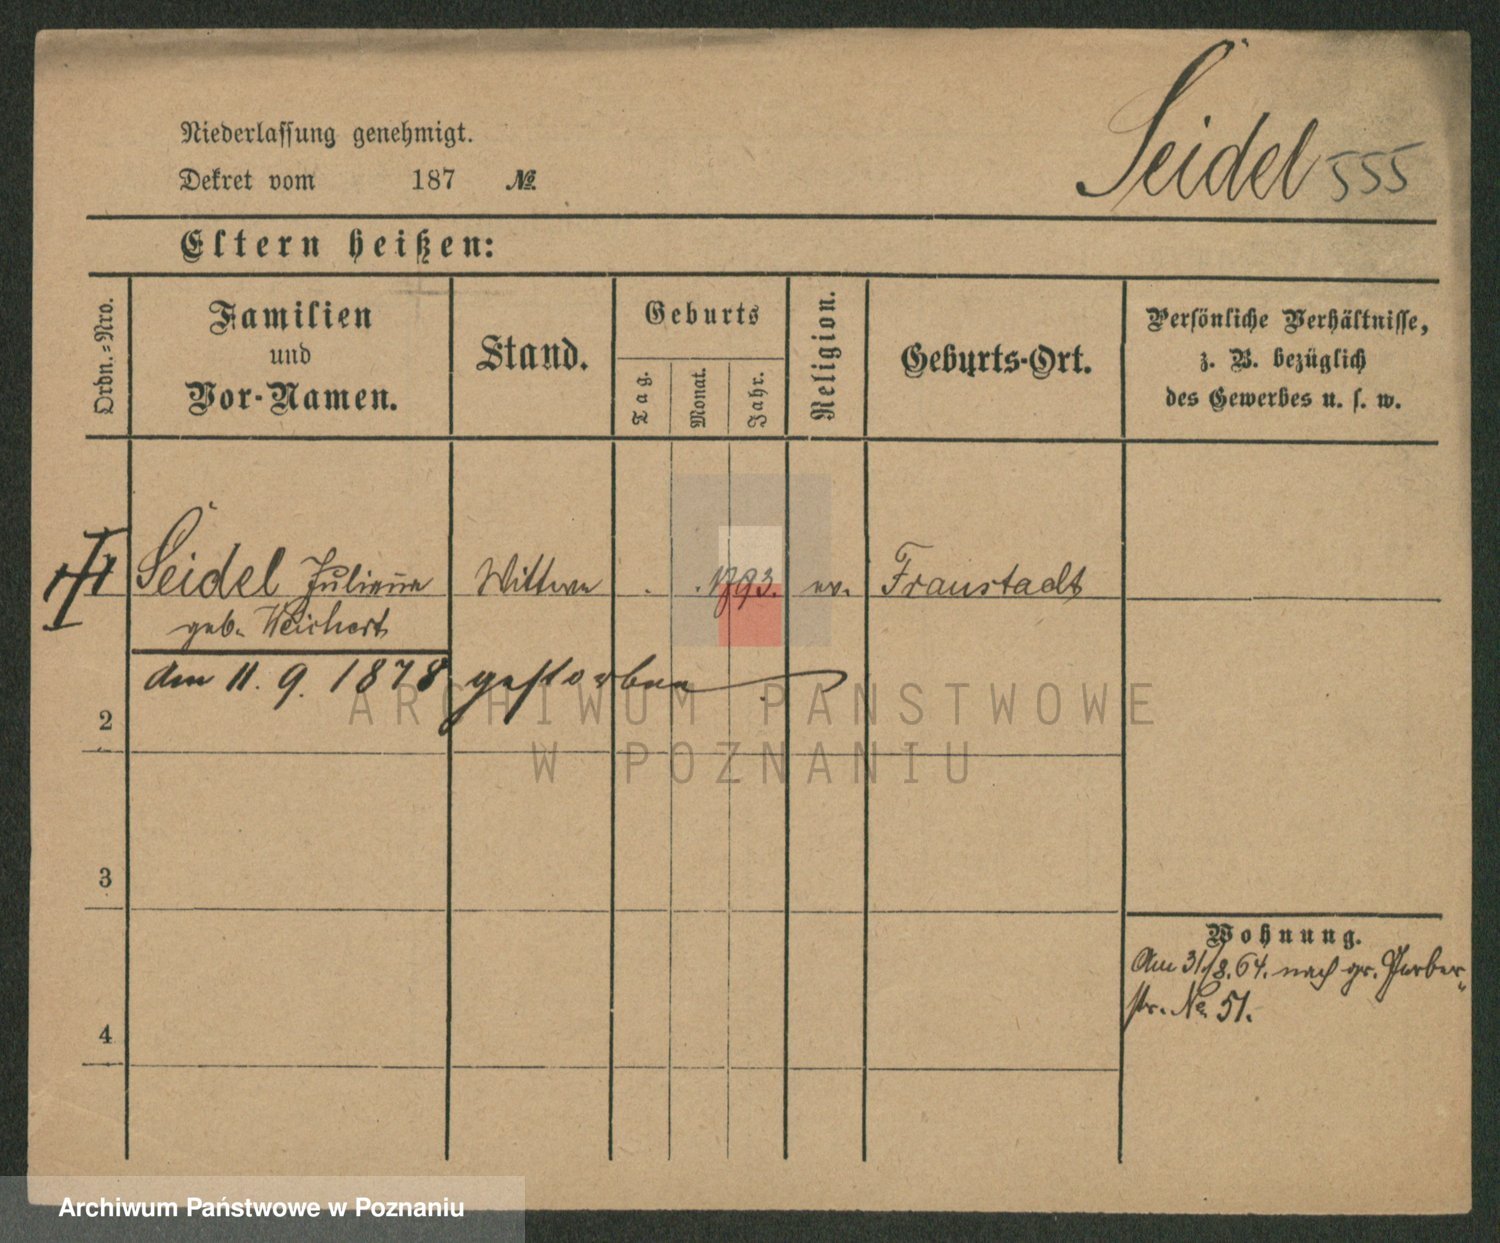 Seidel 555
Niederlassung genehmigt.
Dekret vom 187 №
Eltern heißen:
Ordn.-Nro.
Familien und Vor-Namen.
Stand.
Geburts
Tag.
Monat.
Jahr.
Religion.
Geburts-Ort.
Persönliche Verhältnisse,
z. B. bezüglich
des Gewerbes u. s. w.
Seidel Julianna Wittwe . . 1793. ev. Fraustadt
geb. Weichert
den 11. 9. 1878 gestorben
2
3
4
Wohnung.
Am 31/8. 64. nach gr. Gerber-
str. No. 51.
ARCHIWUM PAŃSTWOWE
W POZNANIU
Archiwum Państwowe w Poznaniu